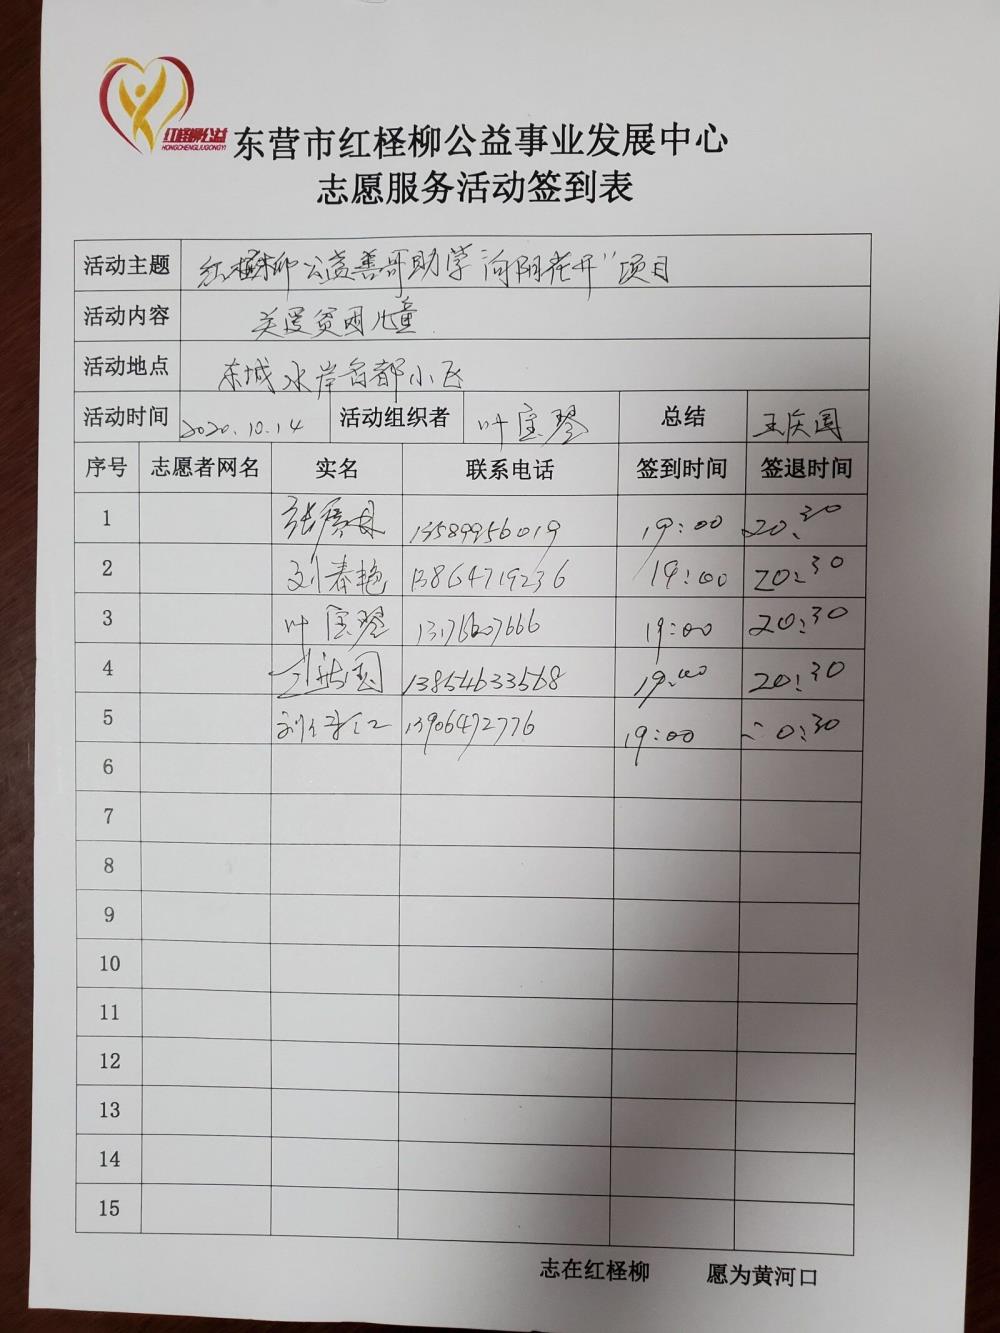 红柽柳公益
HONGCHENGLIUGONGYI
东营市红柽柳公益事业发展中心
志愿服务活动签到表
活动主题 红柽柳公益善哥助学"向阳花开"项目
活动内容 关爱贫困儿童
活动地点 东城水岸名都小区
活动时间 2020.10.14 活动组织者 叶宝琴 总结 王庆国
序号 志愿者网名 实名 联系电话 签到时间 签退时间
1 13589956019 19:00 20:30
2 刘春艳 13864719236 19:00 20:30
3 叶宝琴 19:00 20:30
4 13854633568 19:00 20:30
5 13906472776 19:00 20:30
6
7
8
9
10
11
12
13
14
15
志在红柽柳 愿为黄河口